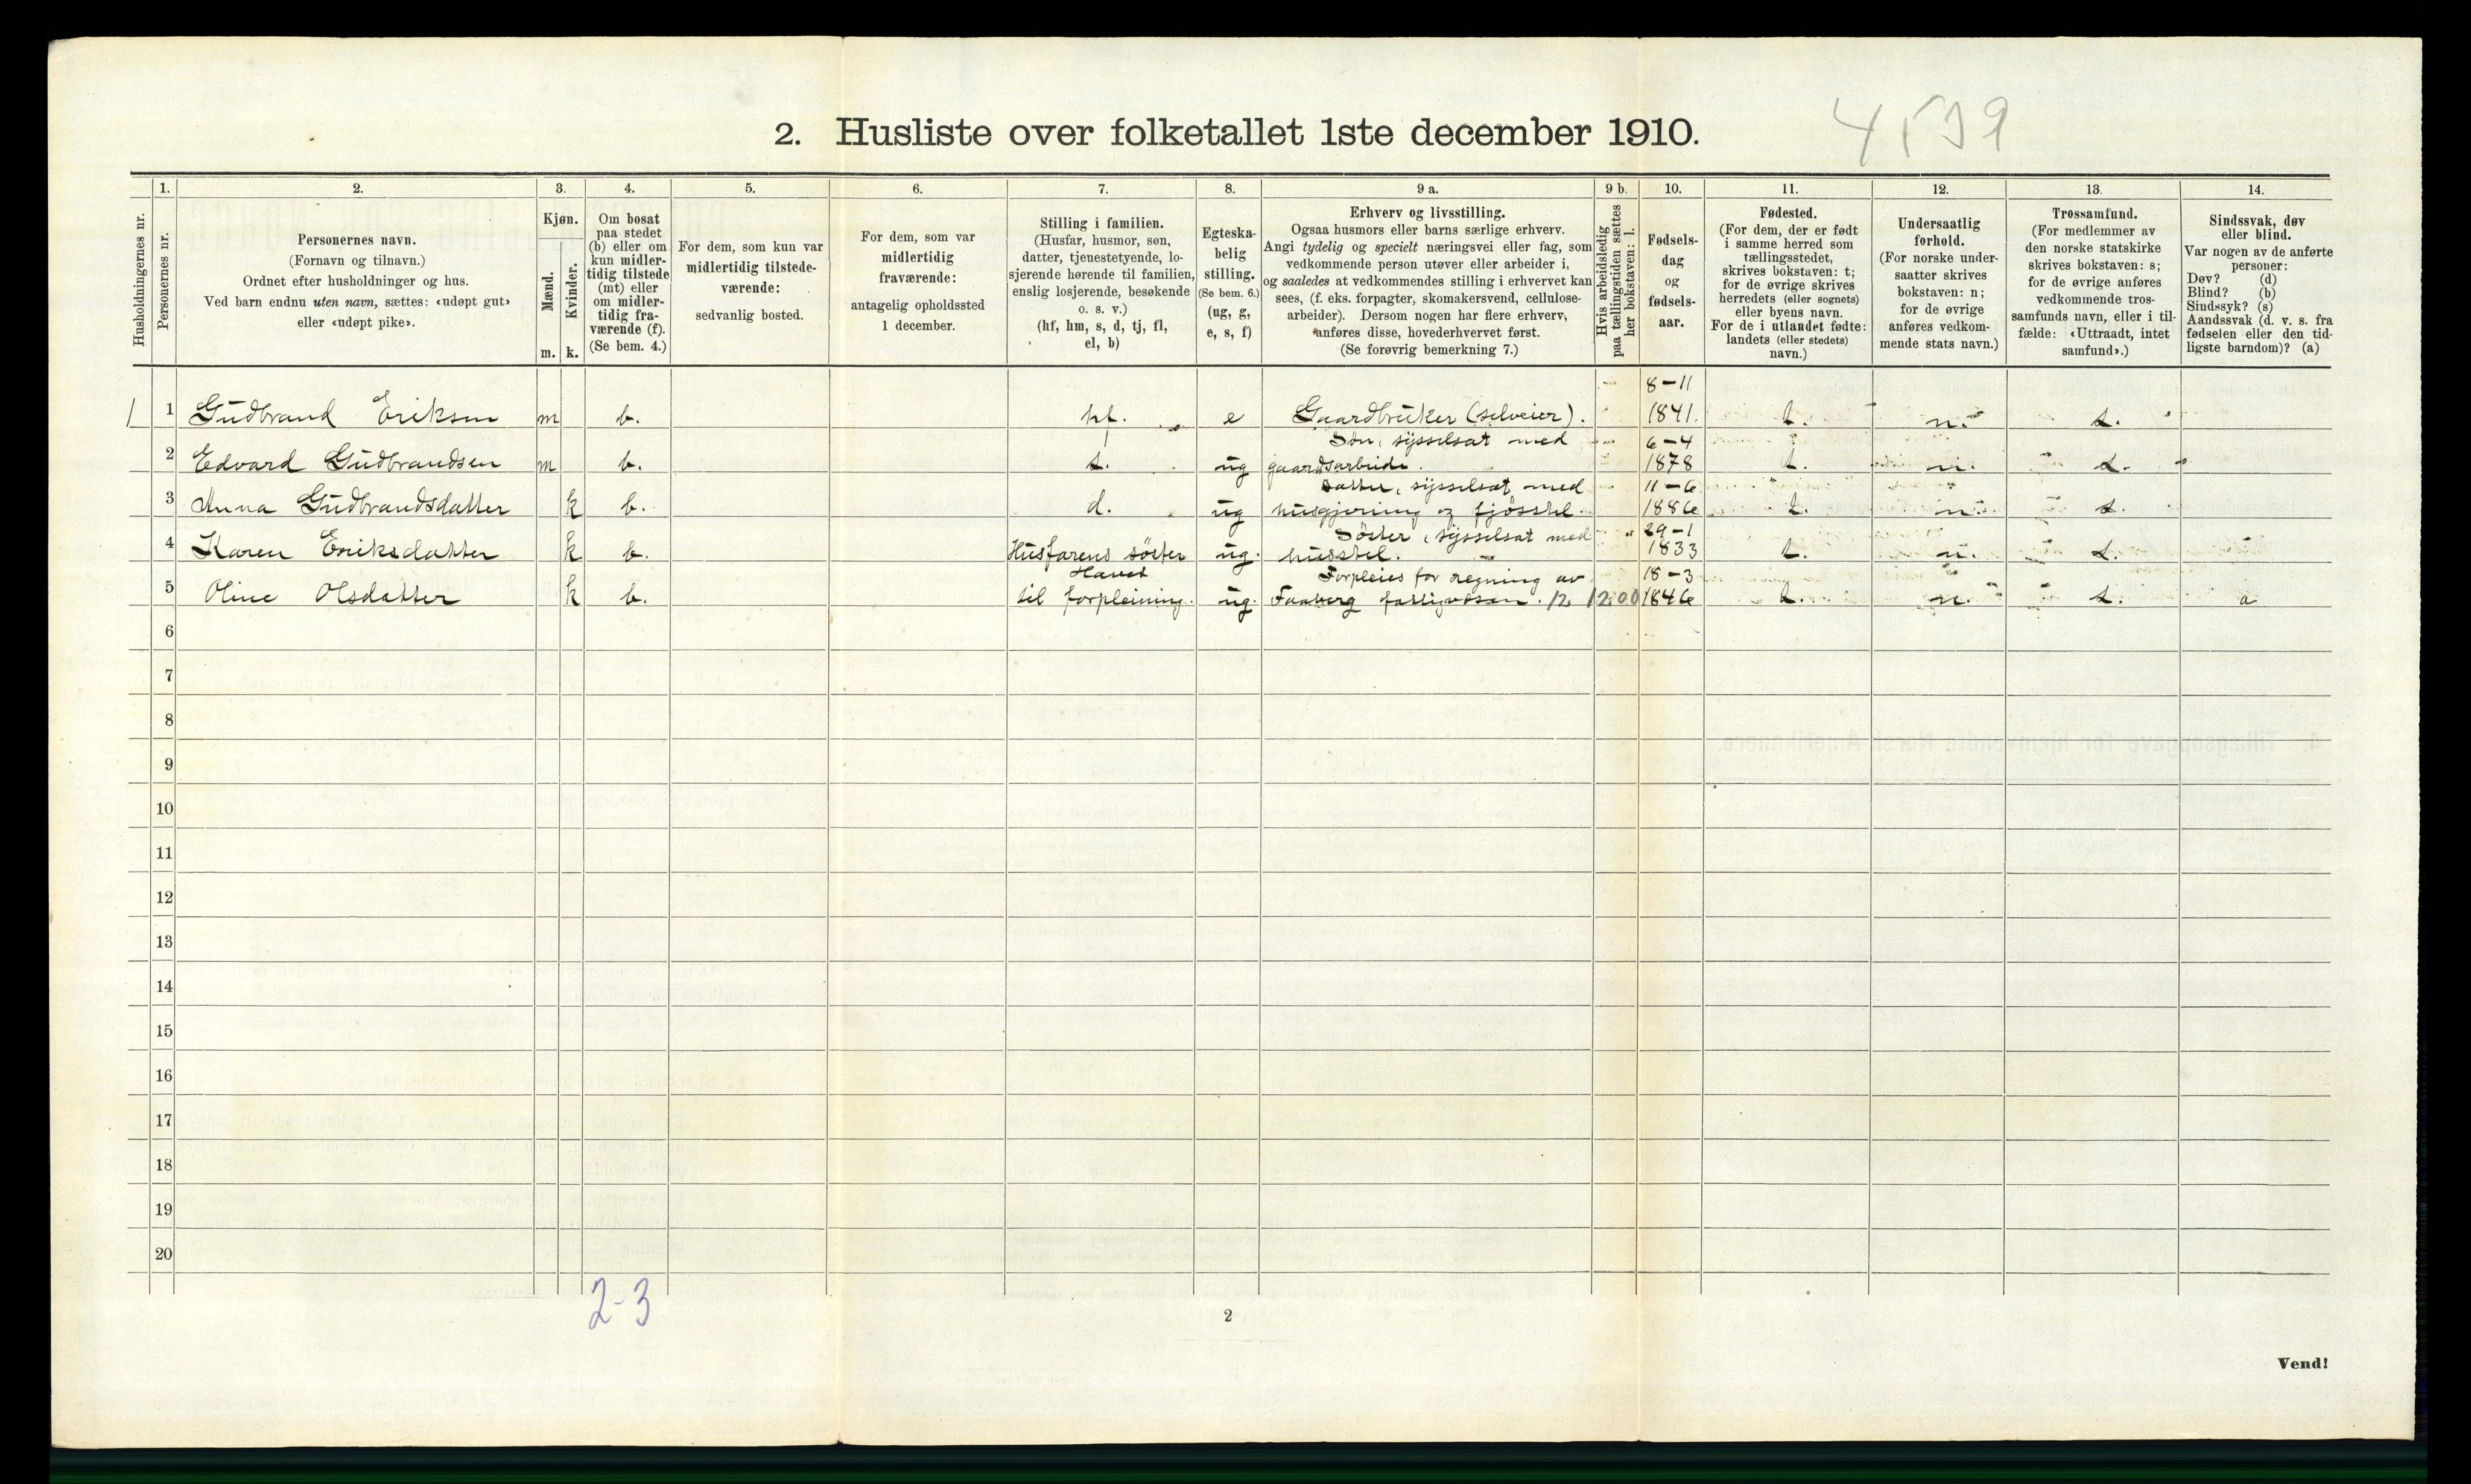 2. Husliste over folketallet 1ste december 1910.
1. 2. 3. 4. 5. 6. 7. 8. 9 a. 9 b. 10. 11. 12. 13. 14.
Husholdningernes nr.
Personernes nr.
Personernes navn.
(Fornavn og tilnavn.)
Ordnet efter husholdninger og hus.
Ved barn endnu uten navn, sættes: «udøpt gut»
eller «udøpt pike».
Kjøn.
Mænd.
Kvinder.
m. k.
Om bosat
paa stedet
(b) eller om
kun midler-
tidig tilstede
(mt) eller
om midler-
tidig fra-
værende (f).
(Se bem. 4.)
For dem, som kun var
midlertidig tilstede-
værende:
sedvanlig bosted.
For dem, som var
midlertidig
fraværende:
antagelig opholdssted
1 december.
Stilling i familien.
(Husfar, husmor, søn,
datter, tjenestetyende, lo-
sjerende hørende til familien,
enslig losjerende, besøkende
o. s. v.)
(hf, hm, s, d, tj, fl,
el, b)
Egteska-
belig
stilling.
(Se bem. 6.)
(ug, g,
e, s, f)
Erhverv og livsstilling.
Ogsaa husmors eller barns særlige erhverv.
Angi tydelig og specielt næringsvei eller fag, som
vedkommende person utøver eller arbeider i,
og saaledes at vedkommendes stilling i erhvervet kan
sees, (f. eks. forpagter, skomakersvend, cellulose-
arbeider). Dersom nogen har flere erhverv,
anføres disse, hovederhvervet først.
(Se forøvrig bemerkning 7.)
Hvis arbeidsledig
paa tællingstiden sættes
her bokstaven: l.
Fødsels-
dag
og
fødsels-
aar.
Fødested.
(For dem, der er født
i samme herred som
tællingsstedet,
skrives bokstaven: t;
for de øvrige skrives
herredets (eller sognets)
eller byens navn.
For de i utlandet fødte:
landets (eller stedets)
navn.)
Undersaatlig
forhold.
(For norske under-
saatter skrives
bokstaven: n;
for de øvrige
anføres vedkom-
mende stats navn.)
Trossamfund.
(For medlemmer av
den norske statskirke
skrives bokstaven: s;
for de øvrige anføres
vedkommende tros-
samfunds navn, eller i til-
fælde: «Uttraadt, intet
samfund».)
Sindssvak, døv
eller blind.
Var nogen av de anførte
personer:
Døv? (d)
Blind? (b)
Sindssyk? (s)
Aandssvak (d. v. s. fra
fødselen eller den tid-
ligste barndom)? (a)
8-11
1 1 Gudbrand Eriksen m b. hf. e Gaardbruker (selveier). 1841. t. n. s.
Søn, sysselsat med 6-4
2 Edvard Gudbrandsen m b. s. ug gaardsarbeide. 1878 t. n. s.
Datter, sysselsat med 11-6
3 Anna Gudbrandsdatter k b. d. ug husgjerning og fjøsstel. 1886 t. n. s.
Söster, sysselsat med 29-1
4 Karen Eriksdatter k b. Husfarens söster ug. husstel. 1833 t. n. s.
Forpleies for regning av 18-3
5 Oline Olsdatter k b. til forpleining. ug. Faaberg fattigvæsen. 12 1200 1846 t. n. s. a
6
7
8
9
10
11
12
13
14
15
16
17
18
19
20
2-3
2
Vend!